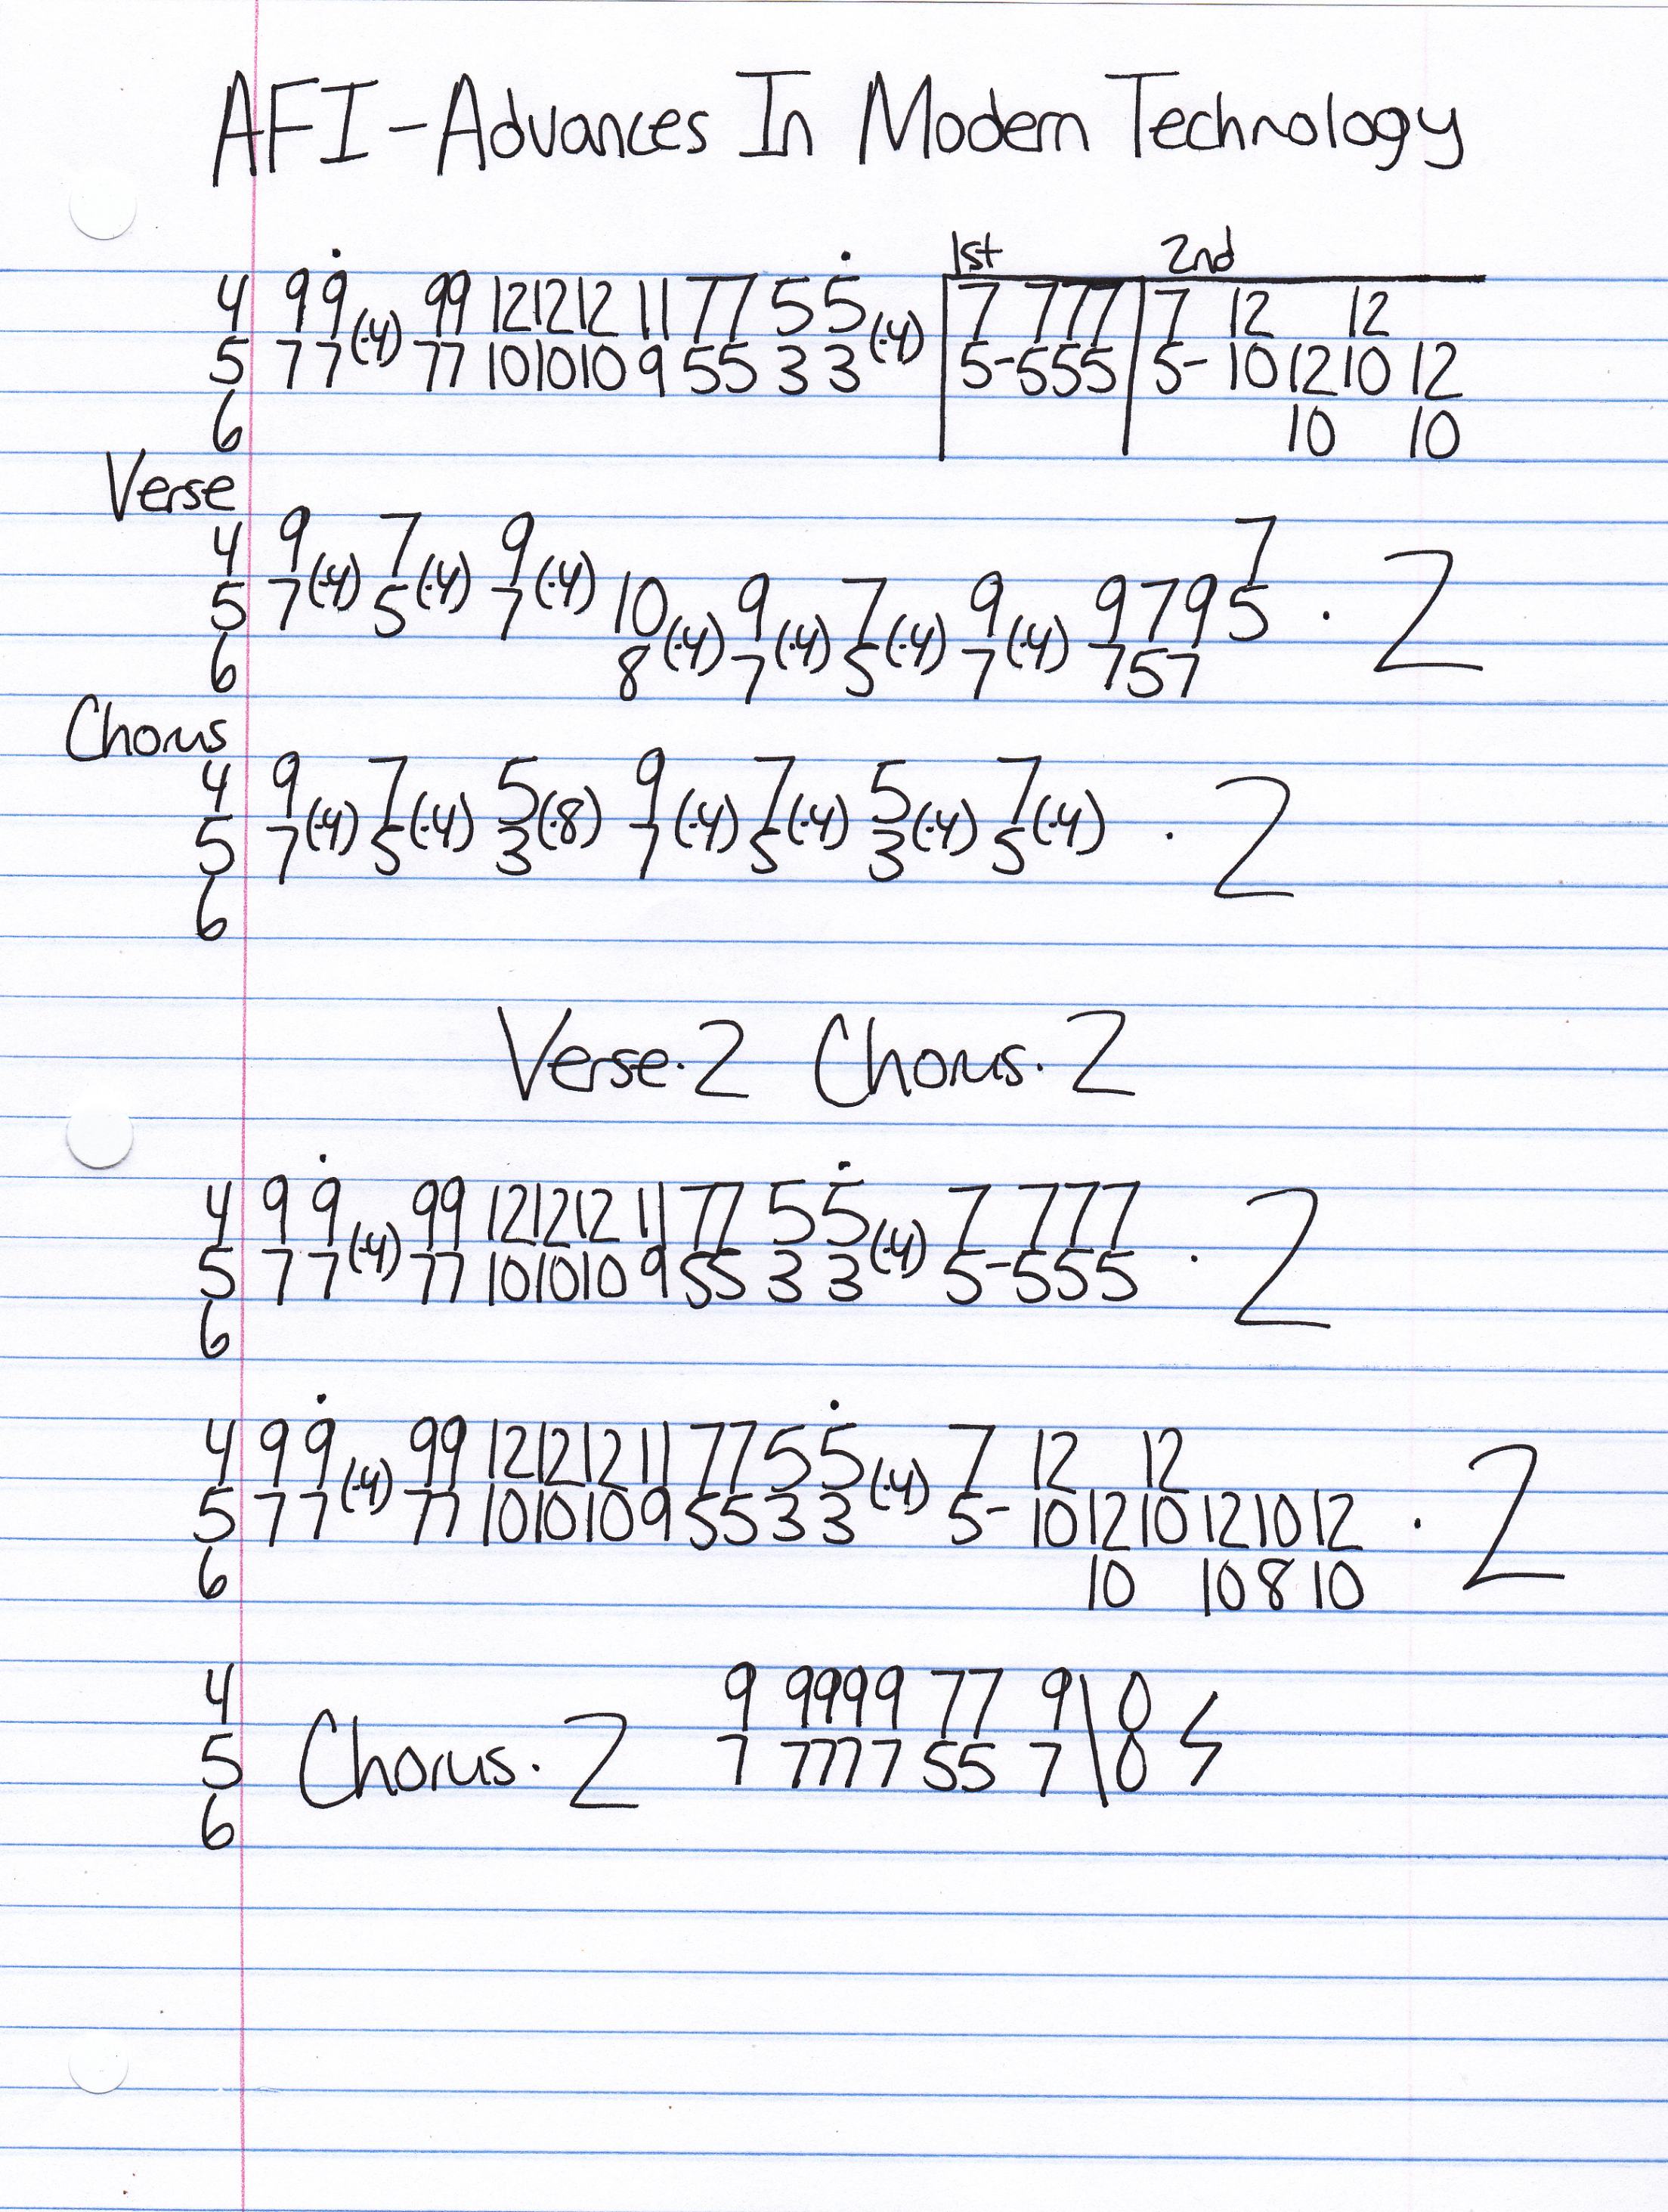 AFI - Advances In Modern Technology
1st 2nd
4 9 9̇ 99 12 12 12 11 77 5 5̇ 7 777 7 12 12
5 7 7 (·4) 77 10 10 10 9 55 3 3 (·4) 5-555 5- 10 12 10 12
6 10 10
Verse
4 9 7 9 7
5 7 (·4) 5 (·4) 7 (·4) 10 9 7 9 9 7 9 5 · 2
6 8 (·4) 7 (·4) 5 (·4) 7 (·4) 7 5 7
Chorus
4 9 7 5 9 7 5 7
5 7 (·4) 5 (·4) 3 (·8) 7 (·4) 5 (·4) 3 (·4) 5 (·4) · 2
6
Verse · 2 Chorus · 2
4 9 9̇ 99 12 12 12 11 77 5 5̇ 7 777
5 7 7 (·4) 77 10 10 10 9 55 3 3 (·4) 5-555 · 2
6
4 9 9̇ 99 12 12 12 11 77 5 5̇ 7 12 12
5 7 7 (·4) 77 10 10 10 9 55 3 3 (·4) 5- 10 12 10 12 10 12 · 2
6 10 10 8 10
4 9 9999 77 9 \ 0
5 Chorus · 2 7 7777 55 7 \ 0
6